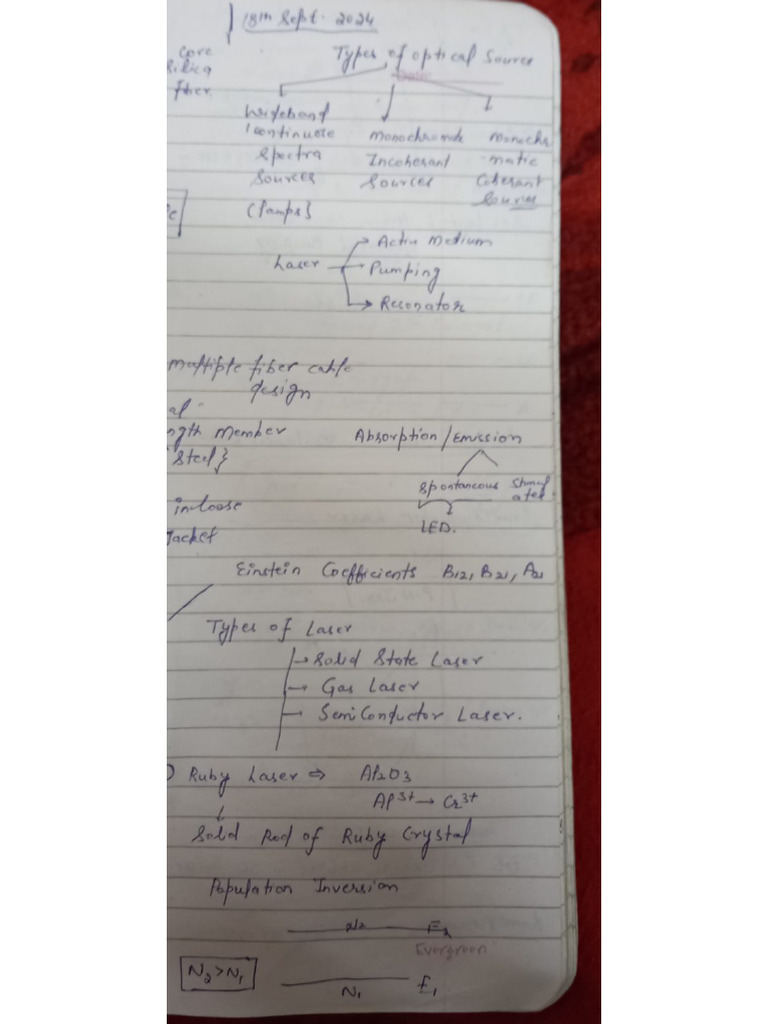 18th Sept. 2024
core
silica
fiber
Types of optical Source
Wideband
continuose
Spectra
Sources
(lamps}
monochromde
Incoherant
Sources
monochr
matic
Coherant
Sources
Laser
Active Medium
Pumping
Resonator
multiple fiber cable
design
al
ngth member
Steel}
in loose
Jacket
Absorption / Emission
Spontaneous
Stimul
ated
LED.
Einstein Coefficients B12, B21, A21
Types of Laser
→ Solid State Laser
→ Gas Laser
→ Semi Conductor Laser.
Ruby Laser ⇒ Al2O3
Al3+ → Cr3+
↓
Solid Rod of Ruby Crystal
Population Inversion
N2 E2
Evergreen
N2 > N1
N1 E1